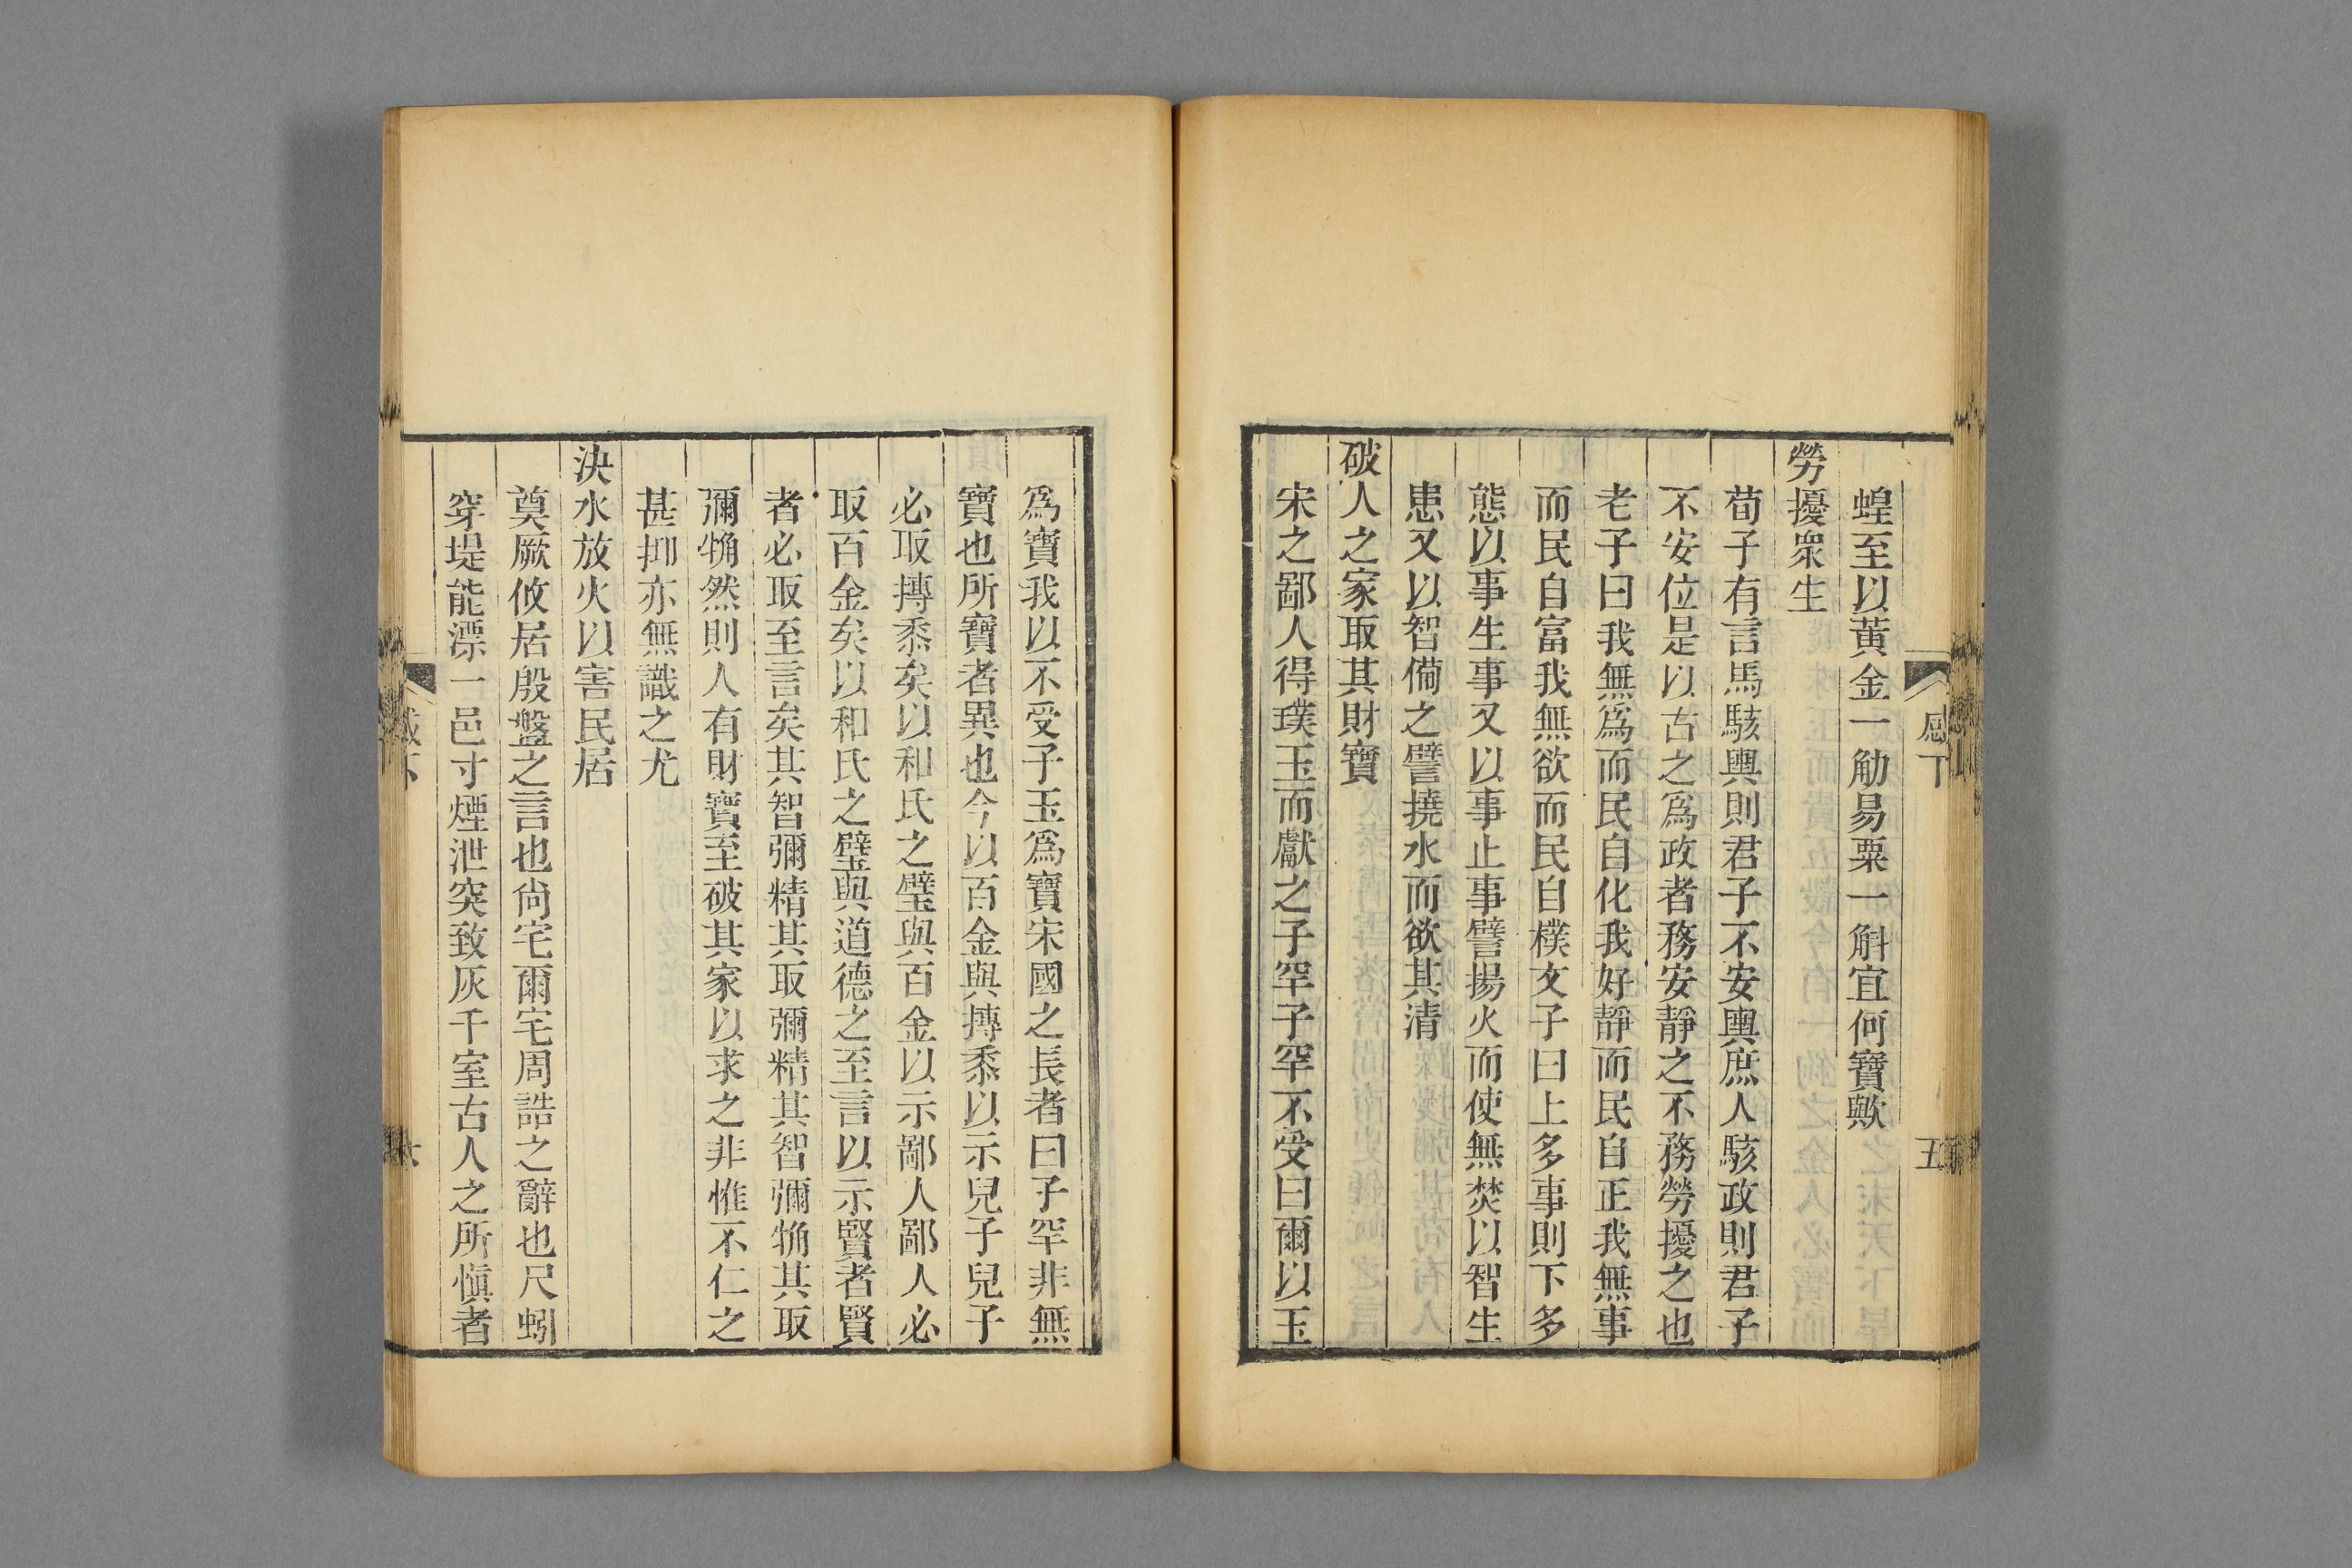 感下
五
蝗至以黃金一觔易粟一斛宜何寶歟
勞擾衆生
荀子有言馬駭輿則君子不安輿庶人駭政則君子
不安位是以古之為政者務安靜之不務勞擾之也
老子曰我無為而民自化我好靜而民自正我無事
而民自富我無欲而民自樸文子曰上多事則下多
態以事生事又以事止事譬揚火而使無焚以智生
患又以智僃之譬撓水而欲其清
破人之家取其財寶
宋之鄙人得璞玉而獻之子罕子罕不受曰爾以玉
為寶我以不受子玉為寶宋國之長者曰子罕非無
寶也所寶者異也今以百金與摶黍以示兒子兒子
必取摶黍矣以和氏之璧與百金以示鄙人鄙人必
取百金矣以和氏之璧與道德之至言以示賢者賢
者必取至言矣其智彌精其取彌精其智彌觕其取
彌觕然則人有財寶至破其家以求之非惟不仁之
甚抑亦無識之尤
決水放火以害民居
奠厥攸居殷盤之言也尙宅爾宅周誥之辭也尺蚓
穿堤能漂一邑寸煙泄突致灰千室古人之所愼者
六